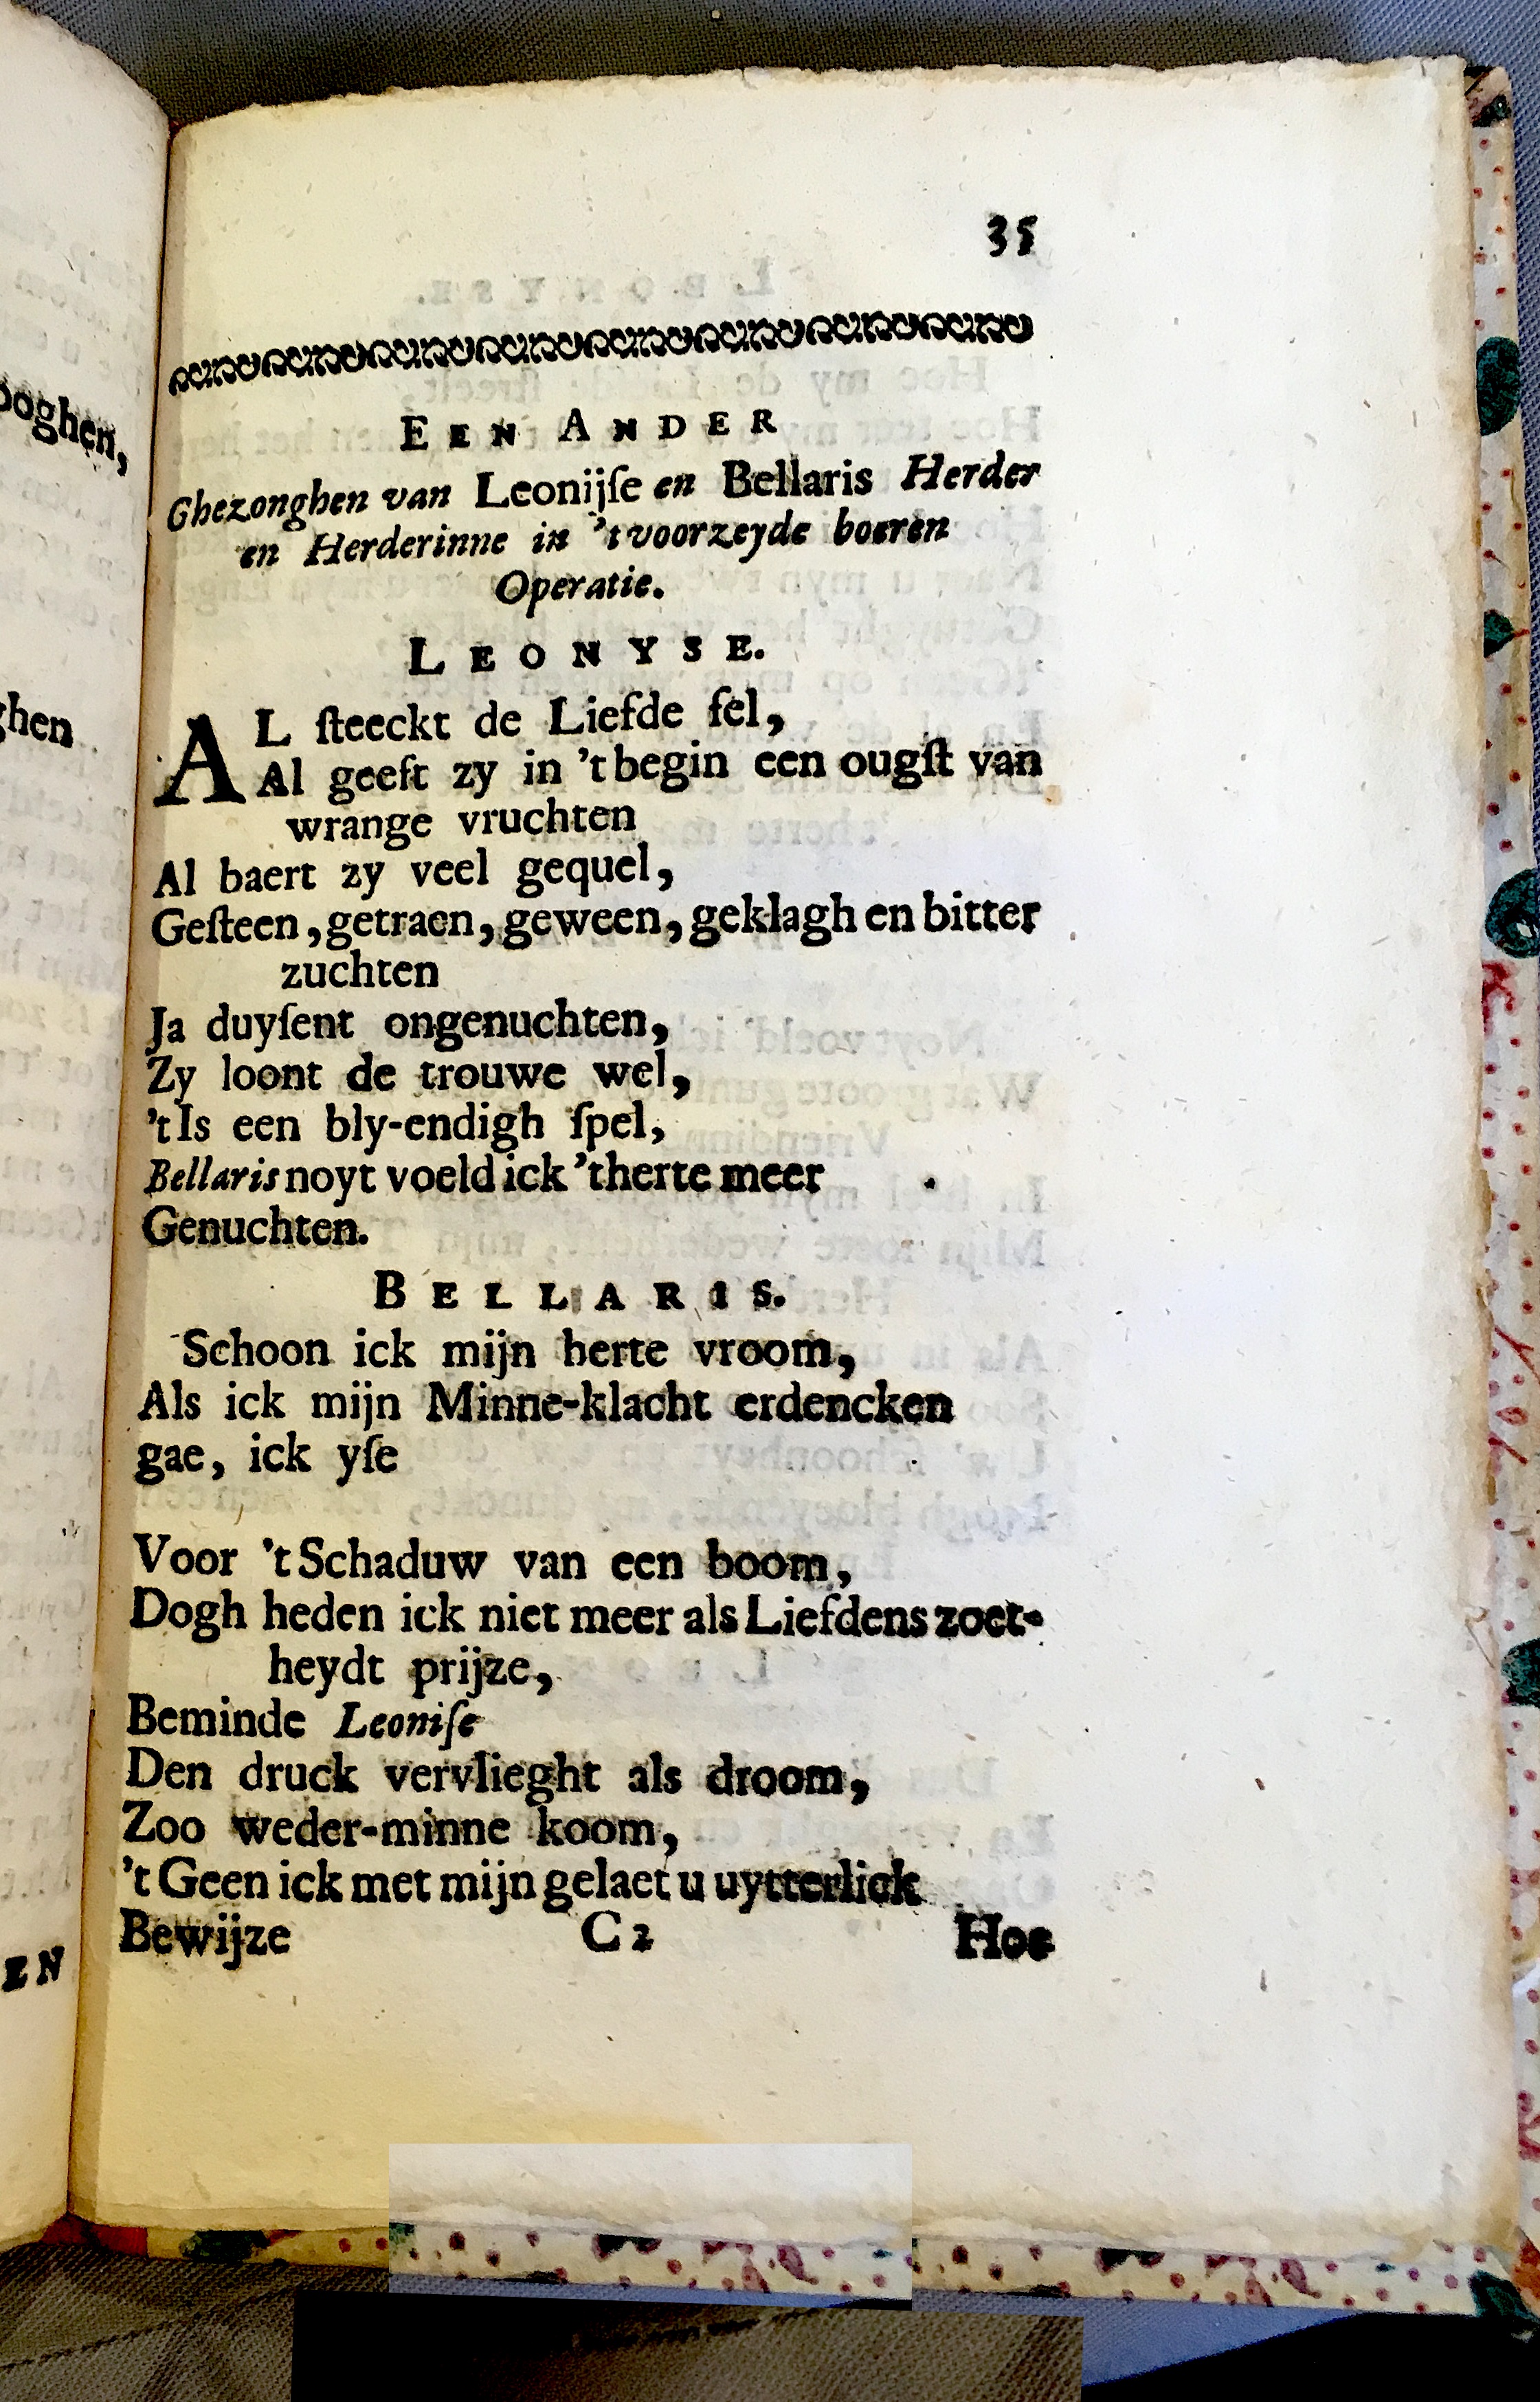 35
EEN ANDER
Ghezonghen van Leonijſe en Bellaris Herder
en Herderinne in 't voorzeyde boeren
Operatie.
LEONYSE.
AL ſteeckt de Liefde fel,
Al geeft zy in 't begin een ougſt van
wrange vruchten
Al baert zy veel gequel,
Geſteen, getraen, geween, geklagh en bitter
zuchten
Ja duyſent ongenuchten,
Zy loont de trouwe wel,
't Is een bly-endigh ſpel,
Bellaris noyt voeld ick 'therte meer
Genuchten.
BELLARIS.
Schoon ick mijn herte vroom,
Als ick mijn Minne-klacht erdencken
gae, ick yſe
Voor 't Schaduw van een boom,
Dogh heden ick niet meer als Liefdens zoet-
heydt prijze,
Beminde Leoniſe
Den druck vervlieght als droom,
Zoo weder-minne koom,
't Geen ick met mijn gelaet u uytterlick
Bewijze C2 Hoe
ooghen,
ghen
EN